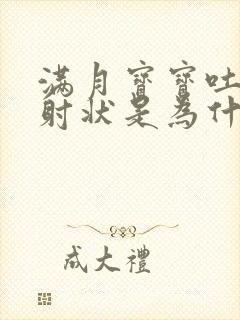 满月寶寶吐
射状是為什
成大禮